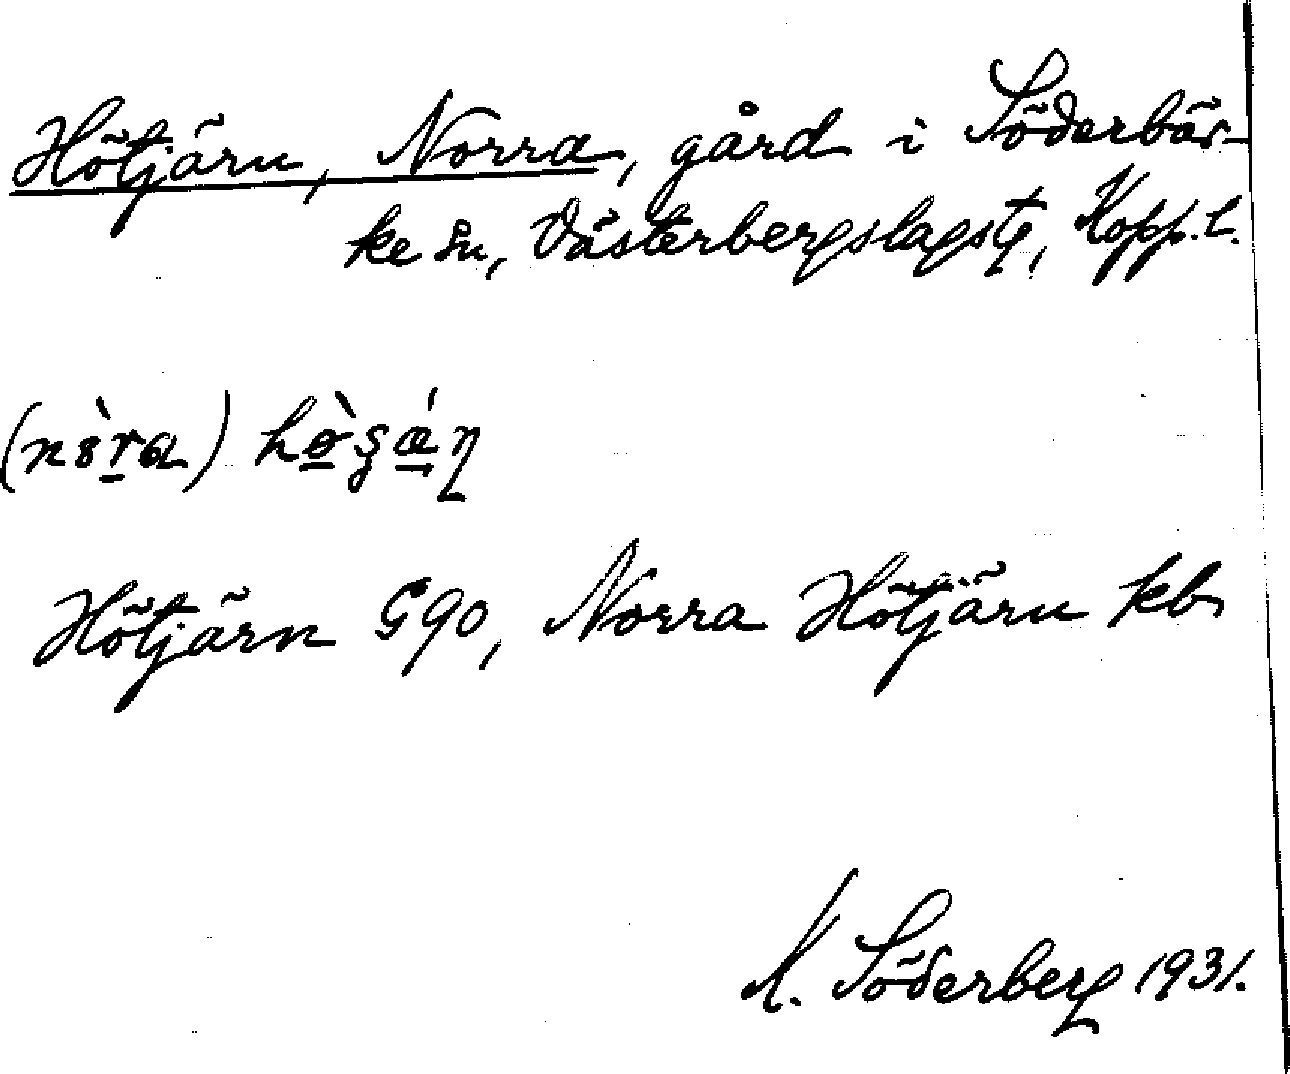 Hötjärn, Norra, gård i Söderbär-
ke sn, Västerbergslagstg, Kopp. l.
(nòra) hø̀ʂǽɳ
Hötjärn G90, Norra Hötjärn kb
M. Söderberg 1931.